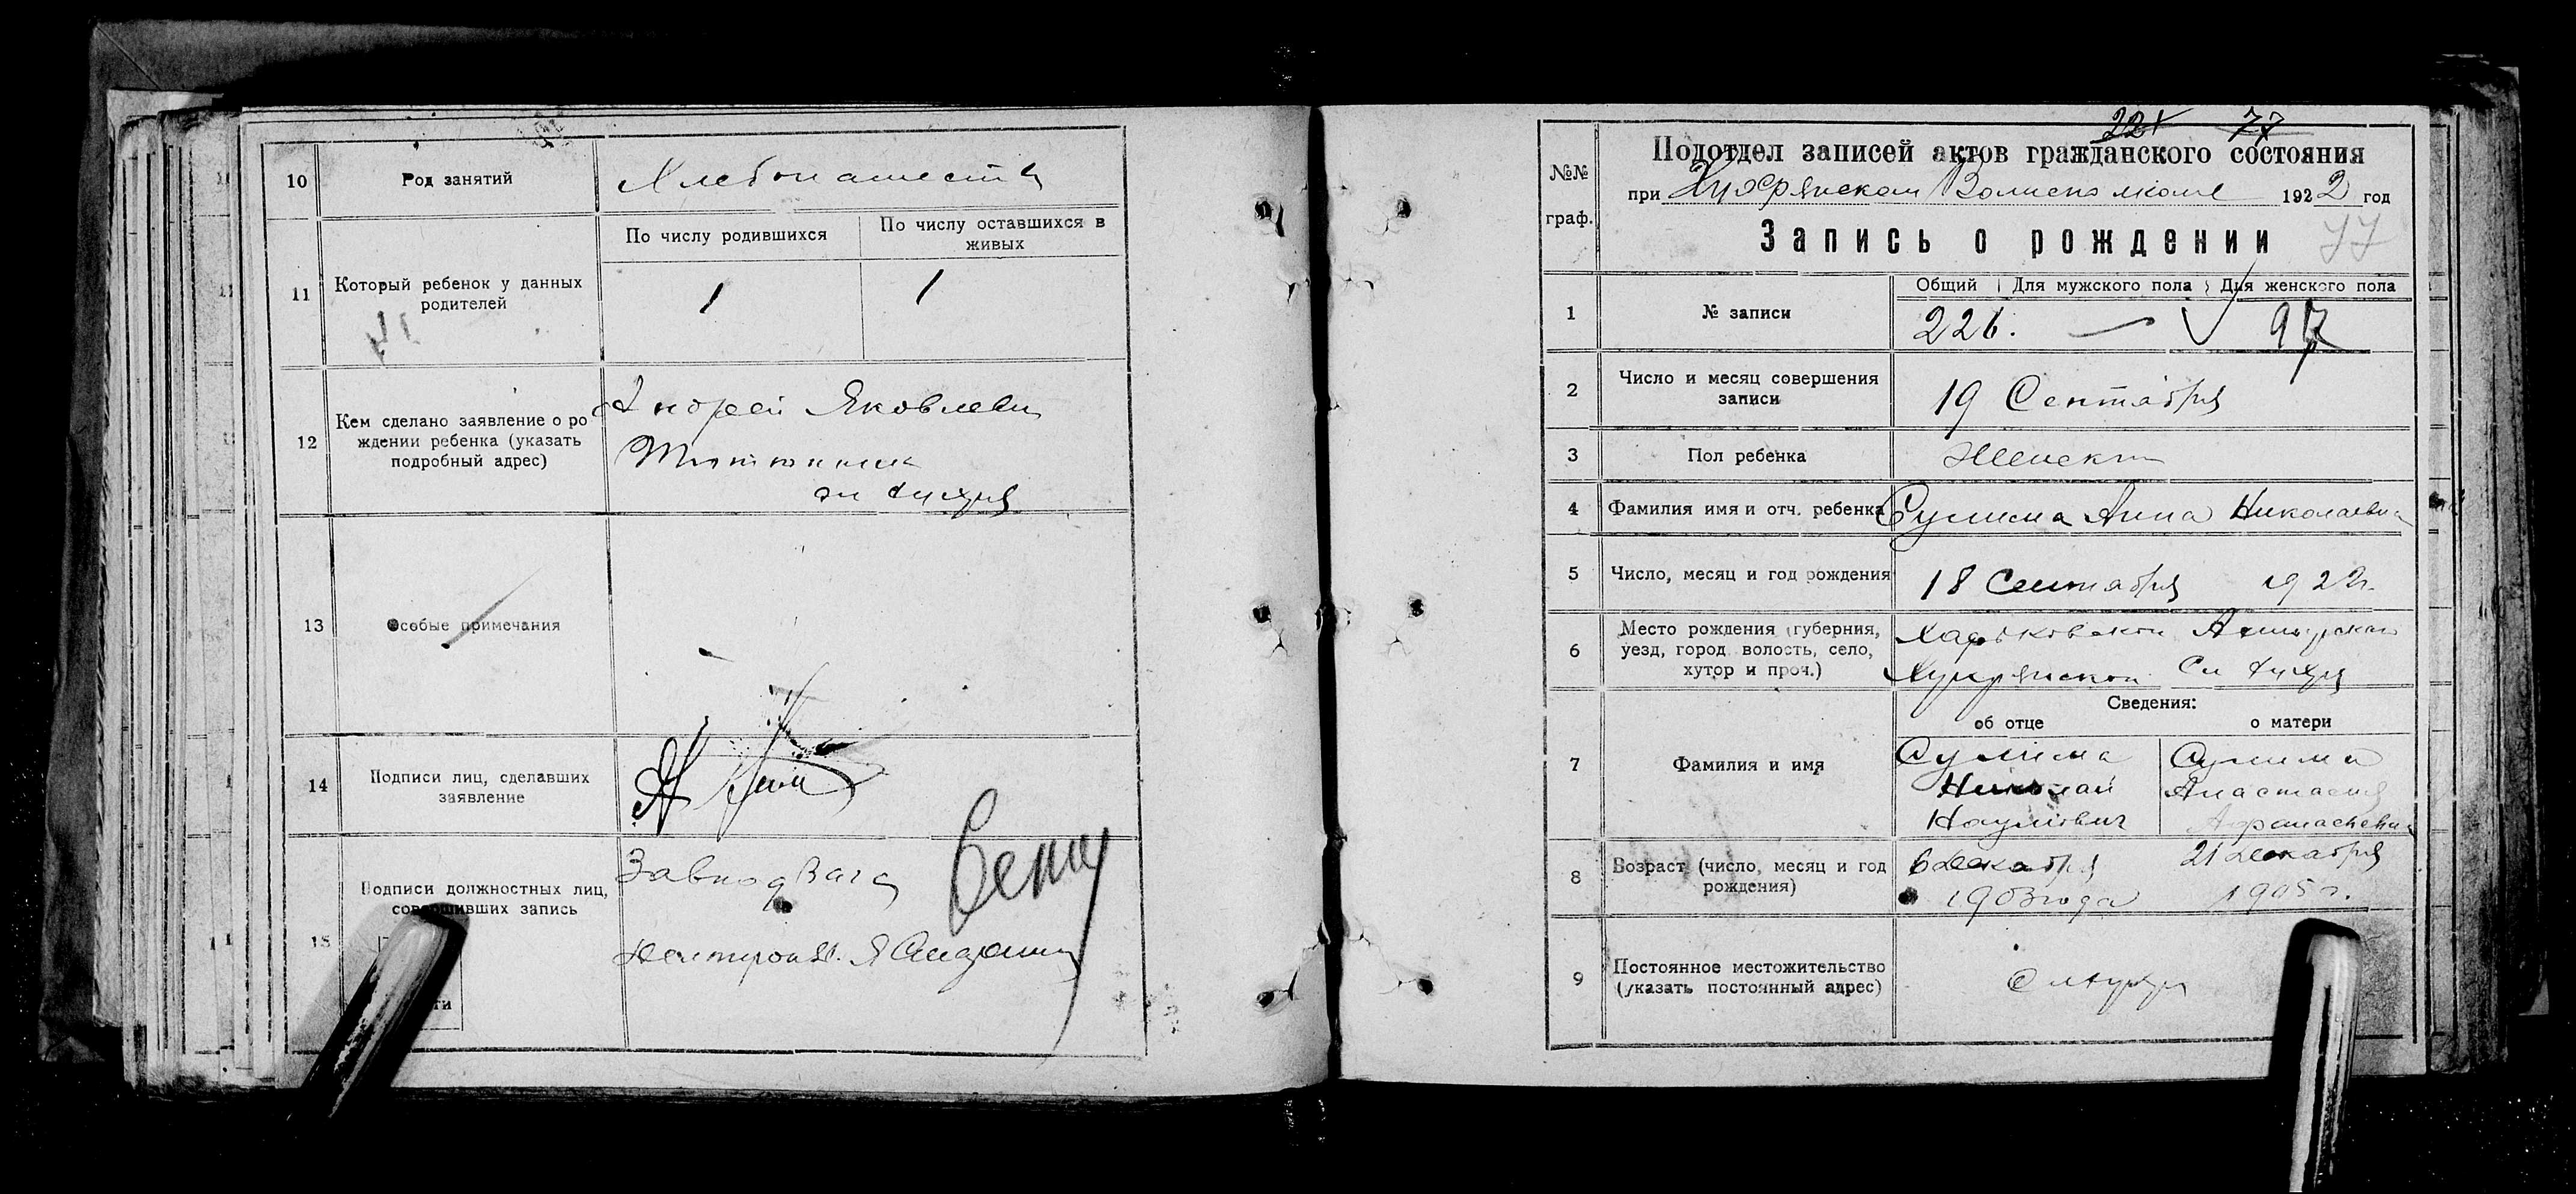 10 Род занятий Хлебопашество
11 Который ребенок у данных родителей
По числу родившихся
По числу оставшихся в живых
1 1
12 Кем сделано заявление о ро
ждении ребенка (указать
подробный адрес)
Андрей Яковлевич
13 Особые примечания
14 Подписи лиц, сделавших
заявление
15 Подписи должностных лиц,
совершивших запись
221 77
№№
граф.
Подотдел записей актов гражданского состояния
при Хухрянском Волисполкоме 1922 год
Запись о рождении 77
Общий Для мужского пола Для женского пола
1 № записи 226. — 97
2 Число и месяц совершения
записи
19 Сентября
3 Пол ребенка Женский
4 Фамилия имя и отч. ребенка Сулима Анна Николаевна
5 Число, месяц и год рождения 18 Сентября 1922 г.
6 Место рождения (губерния,
уезд, город волость, село,
хутор и проч.)
Харьковской Ахтырской
Хухрянской Сл Хухря
Сведения:
об отце о матери
7 Фамилия и имя
Сулима
Николай
Наумович
Сулима
Анастасия
Афанасьевна
8 Возраст (число, месяц и год
рождения)
6 Декабря
1903 года
21 декабря
1905 г.
9 Постоянное местожительство
(указать постоянный адрес)
Сл Хухря